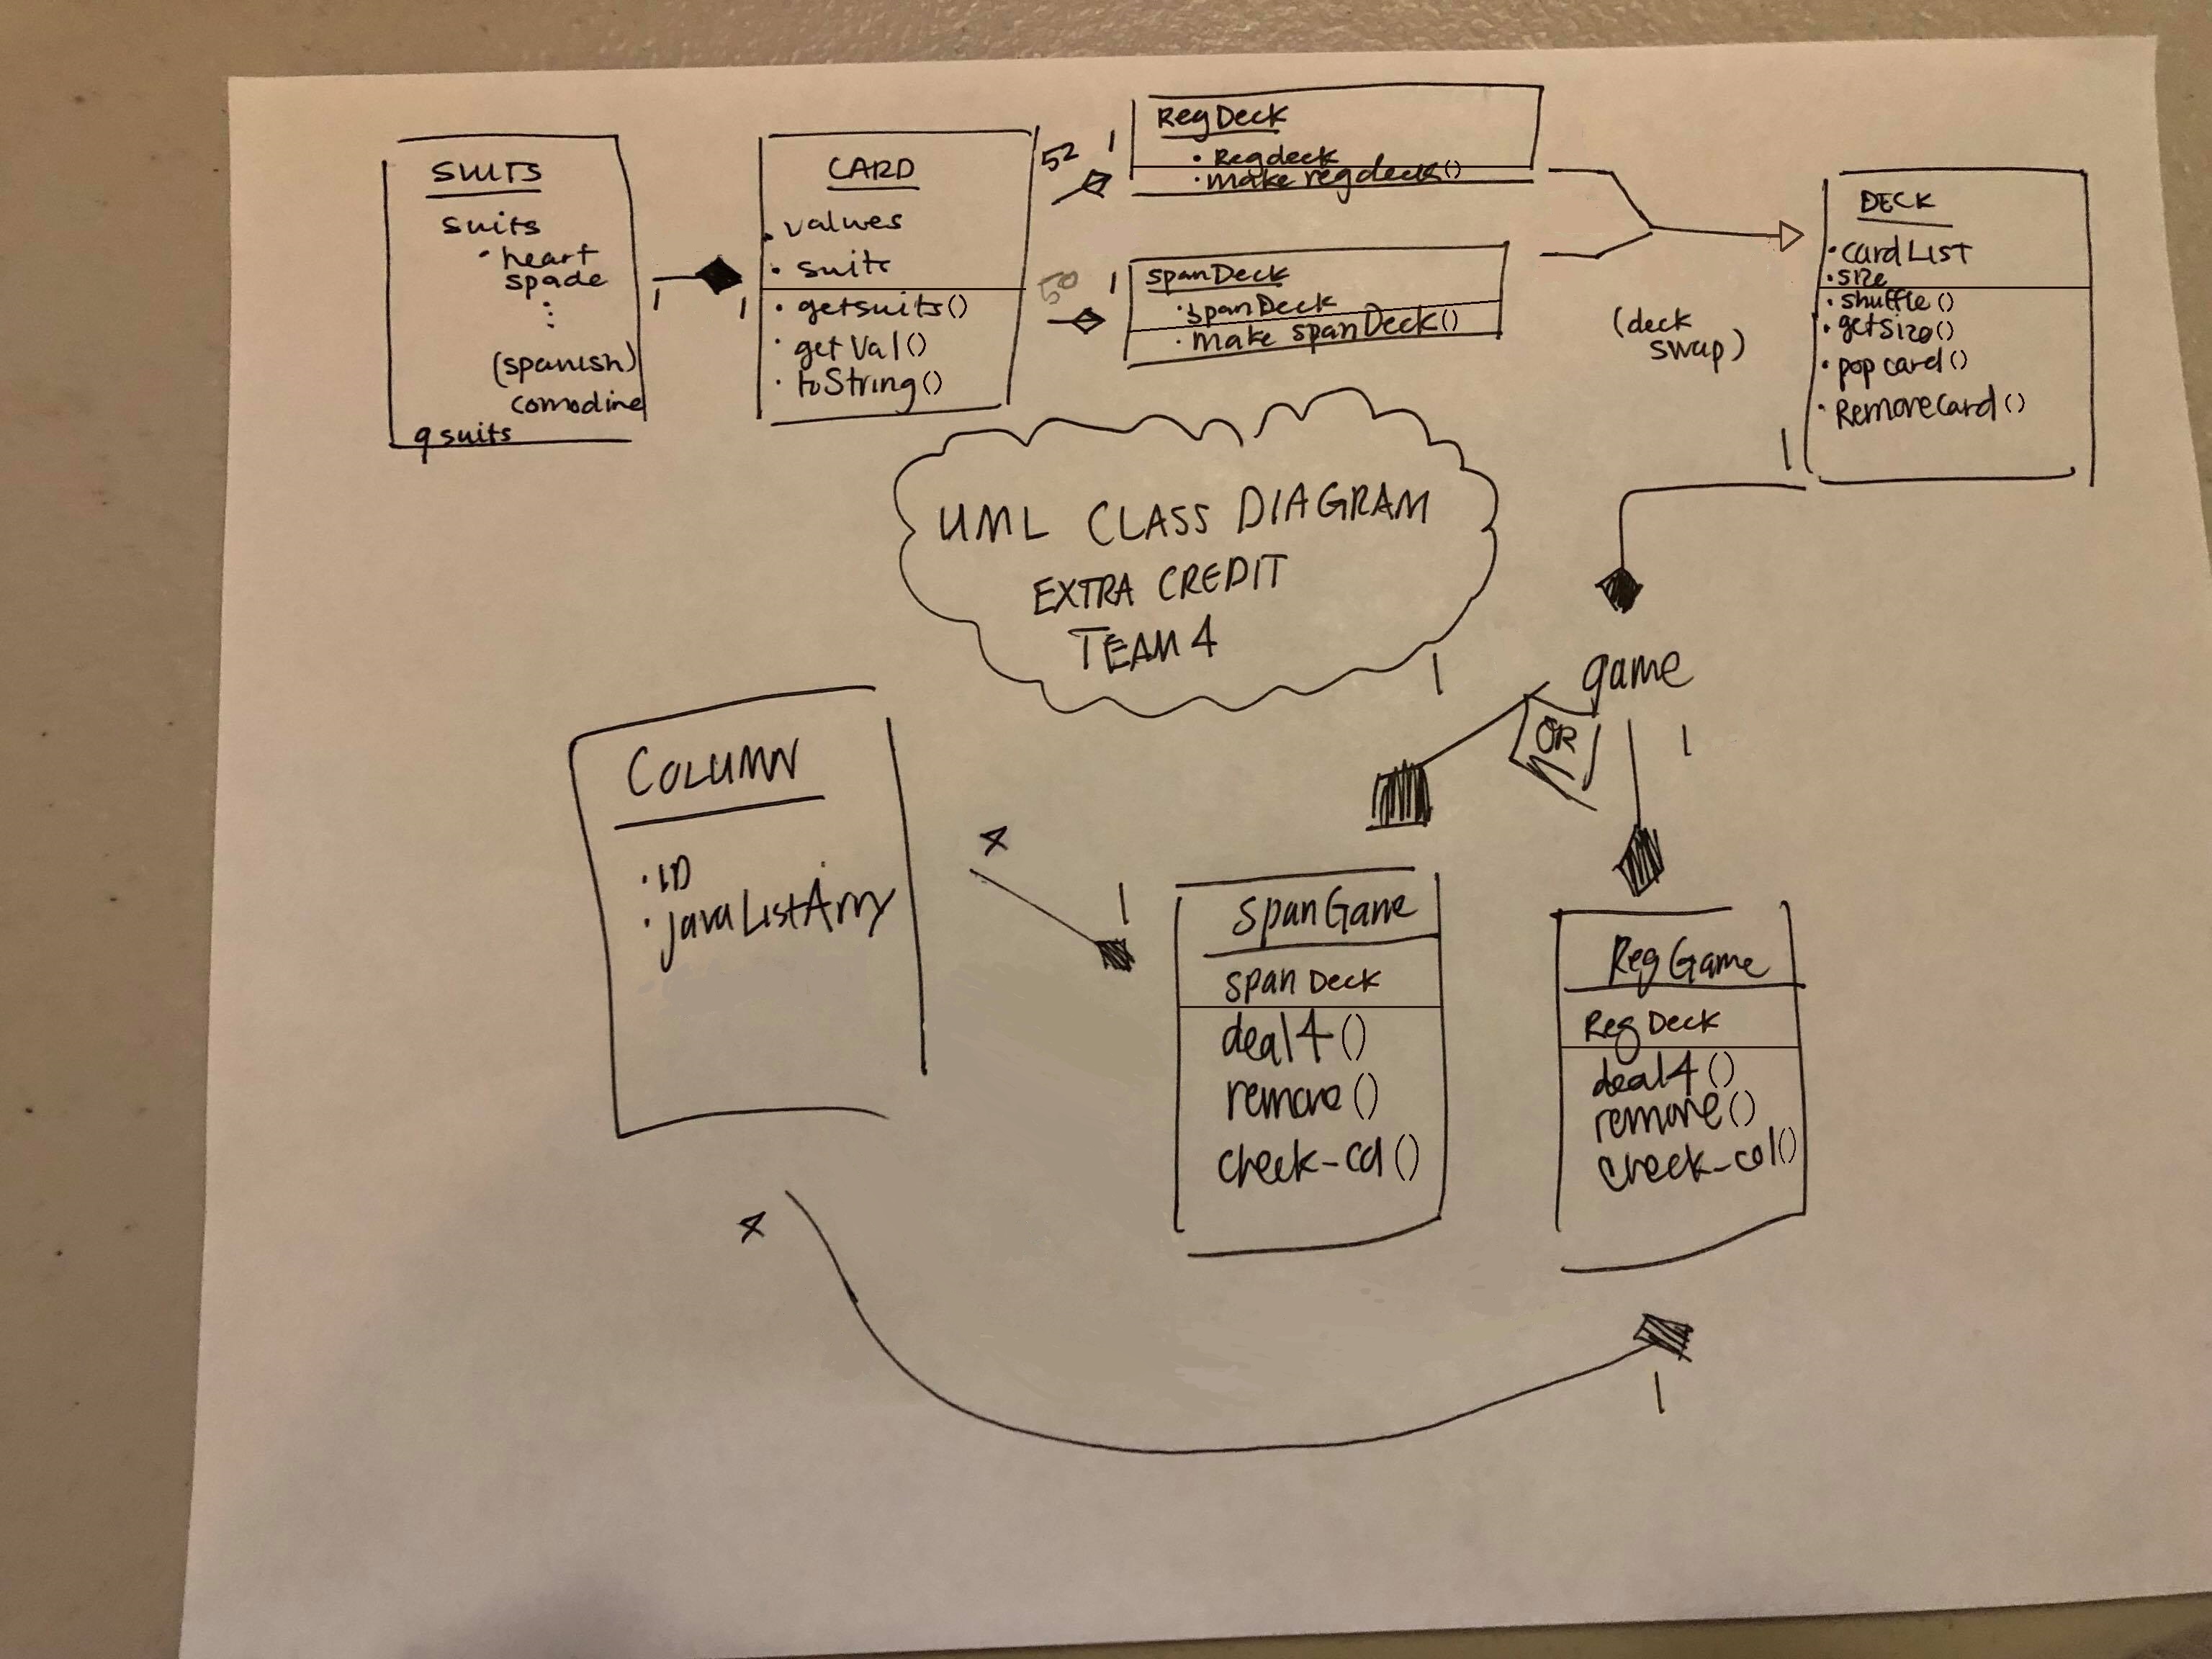 SUITS
suits
• heart
spade
⋮
(spanish)
comodine
9 suits
1
1
CARD
• values
• suits
• getsuits()
• getVal()
• toString()
52
1
RegDeck
• Regdeck
• make regdeck()
50
1
spanDeck
• spanDeck
• make spanDeck()
(deck
swap)
DECK
• cardList
• size
• shuffle()
• getsize()
• pop card()
• Removecard()
1
UML CLASS DIAGRAM
EXTRA CREDIT
TEAM 4
game
1
OR
1
COLUMN
• ID
• javaListArry
4
1
SpanGame
span Deck
deal4()
remove()
check-col()
Reg Game
Reg Deck
deal4()
remove()
check-col()
4
1